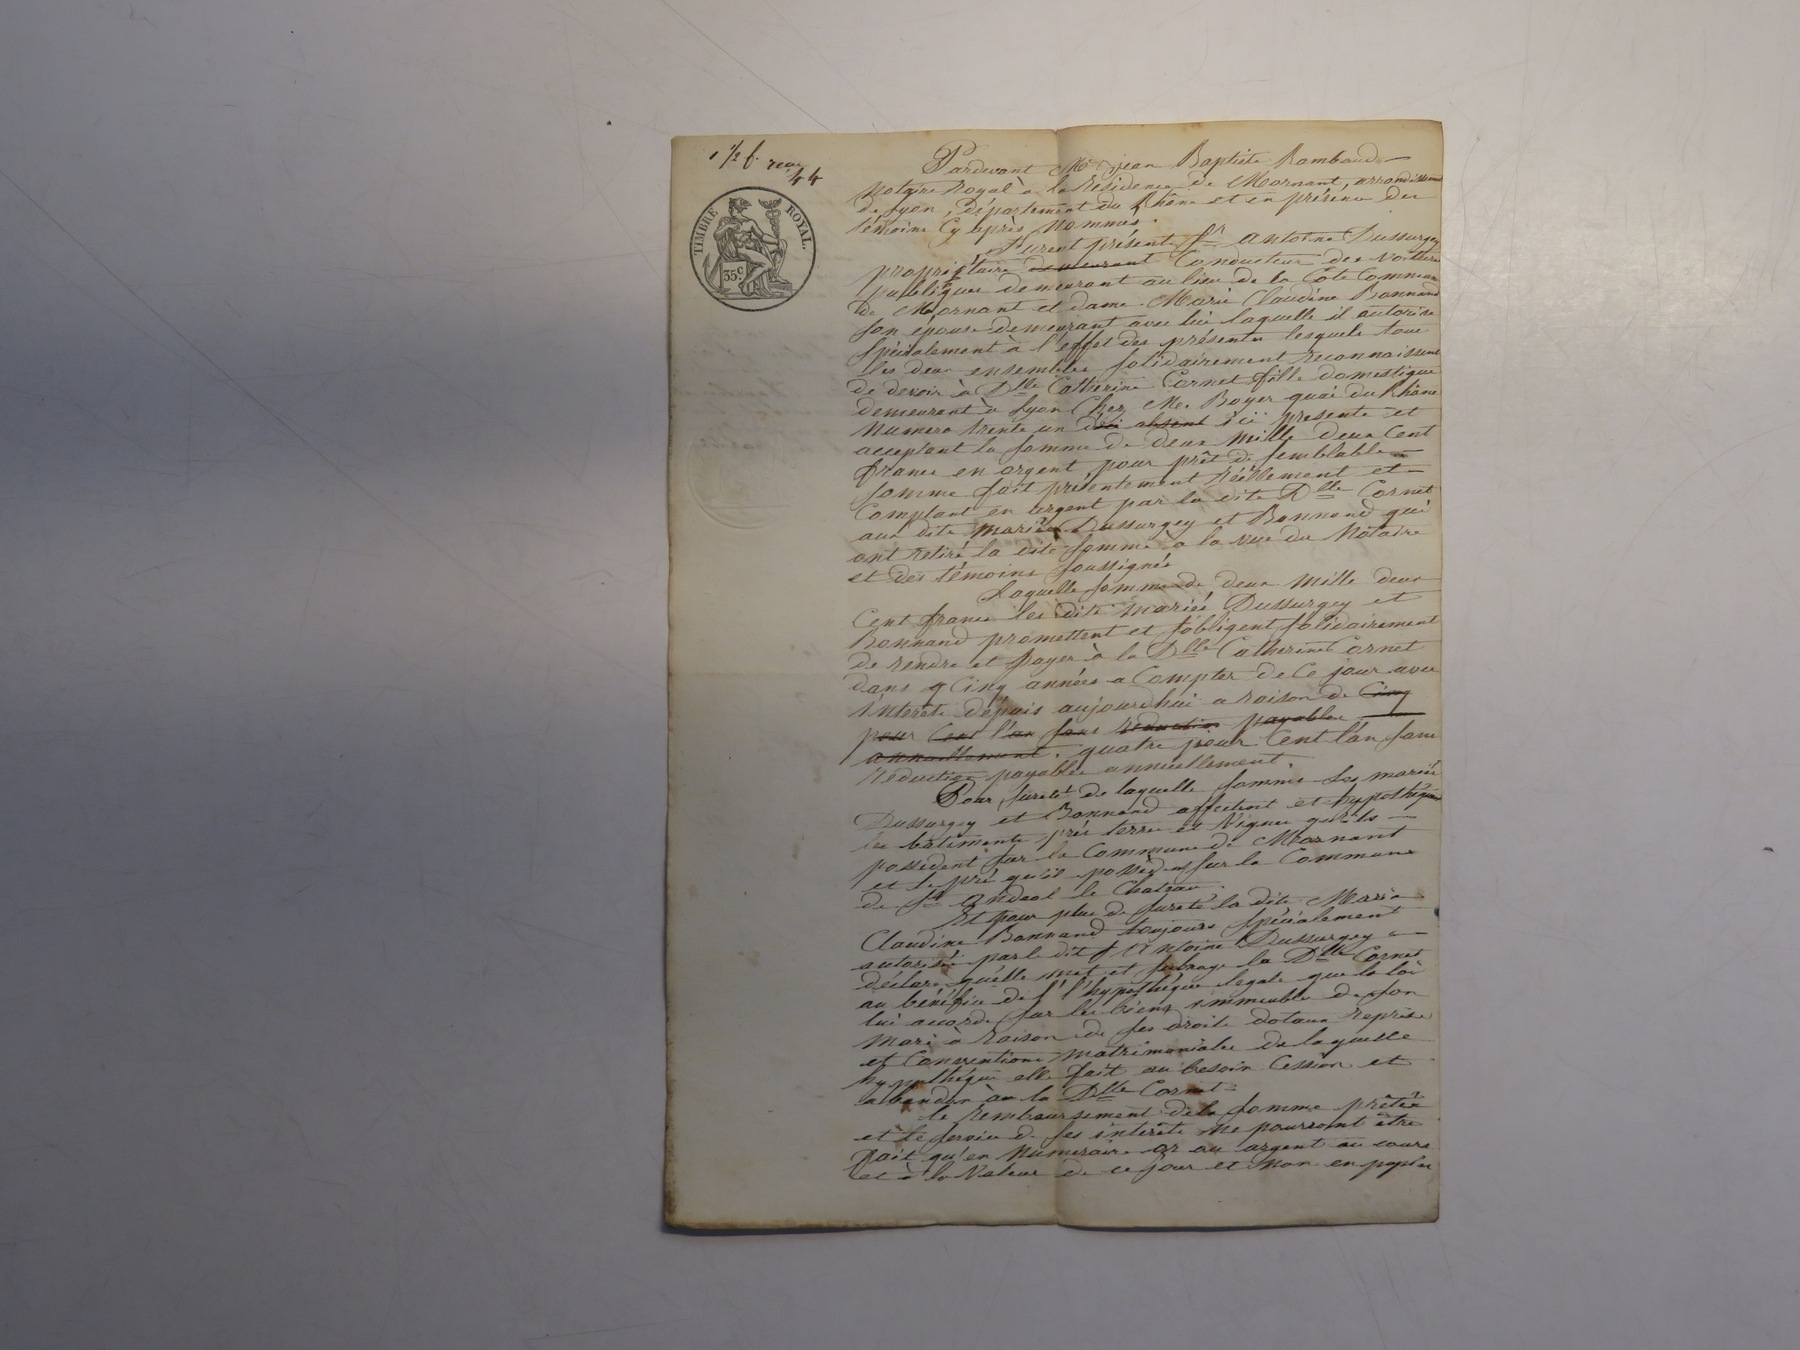 1 1/2 f.
44
TIMBRE ROYAL.
35 c
Pardevant Me jean Baptiste Rambaud
notaire Royal à la résidence de Mornant, arrondissement
de Lyon, département du Rhône et en présence des
témoins Cy après Nommés.
Furent présents Sr. antoine Dussurgey
propriétaire demeurant Conducteur des voitures
publiques demeurant au lieu de la Cote Commune
de Mornant et dame Marie Claudine Bonnand
son epouse demeurant avec lui laquelle il autorise
spécialement à l'effet des présentes lesquels tous
les deux ensembles solidairement reconnaissent
de devoir à Dlle Catherine Cornet fille domestique
demeurant à Lyon Chez Mr. Boyer quai du Rhône
numero trente un ici absent ici presente et
acceptant la somme de deux mille deux Cent
francs en argent pour prêt de semblable
somme fait présentement réellement et
Comptant en argent par la dite Dlle Cornet
aux dits mariés Dussurgey et Bonnand qui
ont retiré la dite somme à la vue du Notaire
et des témoins soussignés
Laquelle somme de deux mille deux
Cent francs les dits mariés Dussurgey et
Bonnand promettent et s'obligent solidairement
de rendre et payer à la Dlle Catherine Cornet
dans Cinq années a Compter de Ce jour avec
intérêts depuis aujourdhui a raison de Cinq
pour Cent l'an sans réduction payables
annuellement. quatre pour Cent l'an sans
réduction payables annuellement.
Pour sureté de laquelle somme les mariés
Dussurgey et Bonnand affectent et hypothèquent
les bâtiments prés terres et Vignes qu'ils
possèdent sur la Commune de Mornant
et le pré qu'ils possèdent sur la Commune
de St. andeol le Chateau.
Et pour plus de sureté la dite Marie
Claudine Bonnand toujours spécialement
autorisée par le dit Sr Antoine Dussurgey
déclare quelle met et subroge la Dlle Cornet
au bénéfice de l'hypothèque legale que la loi
lui accorde sur les biens immeubles de son
mari à raison de ses droits dotaux reprises
et Conventions matrimoniales de laquelle
hypothèque elle fait au besoin Cession et
abandon à la Dlle Cornet.
le remboursement de la somme prêtée
et le service de ses intérêts ne pourront être
fait qu'en Numeraire or ou argent au cours
et à la Valeur de ce jour et non en papier